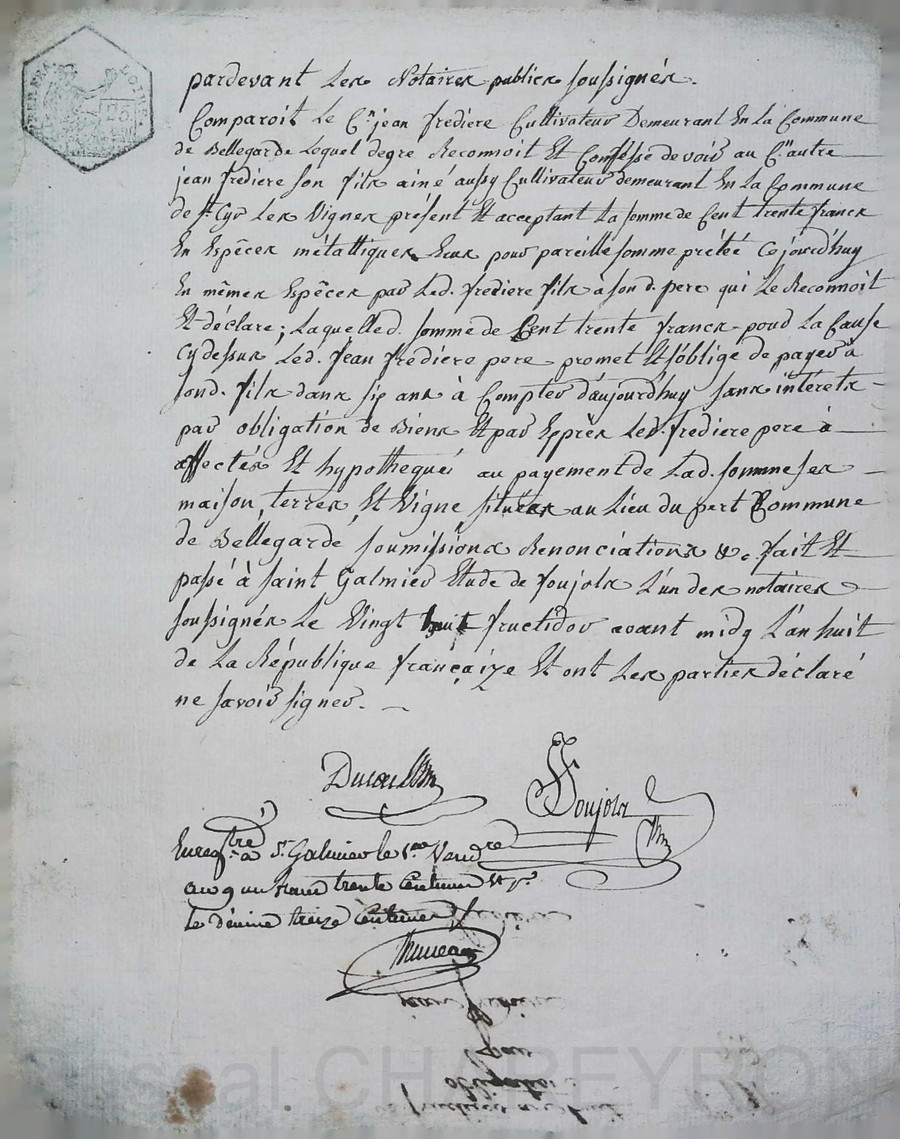 pardevant Les Notaires publics soussignés.
Comparoit Le C.n jean fredière Cultivateur Demeurant En La Commune
de Bellegarde Lequel de gre Reconnoit Et Confesse devoir au C.n autre
jean fredière son fils ainé aussy Cultivateur demeurant En La Commune
de S.t Cyr Les Vignes présent Et acceptant La somme de Cent trente francs
En Espêces métalliques Eux pour pareille somme prétée Cejourd'huy
En mêmes Espêces par Led. fredière fils a son d. pere qui Le Reconnoit
Et déclare; Laquelle d. somme de Cent trente francs pour La Cause
Cydessus Led. jean fredière pere promet Et s'oblige de payer à
son d. fils dans six ans à Compter d'aujourd'huy sans intérets
par obligation de Biens Et par Exprès Led. fredière pere à
affectés Et hypothequé au payement de Lad. somme ses
maison, terres, Et Vigne situées au Lieu du pert Commune
de Bellegarde soumissions Renonciations &c. fait Et
passé à saint Galmier Etude de soujols L'un des notaires
soussignés Le Vingt huit fructidor avant midy L'an huit
de La République françaize Et ont Les parties déclaré
ne savoir signer.
Soujols
Enreg.tré à S.t Galmier le 1.er Vend.re
an 9 un franc trente Centimes et p.r
le décime treize Centimes
jean fredière
par
obligation
Pascal CHAREYRON